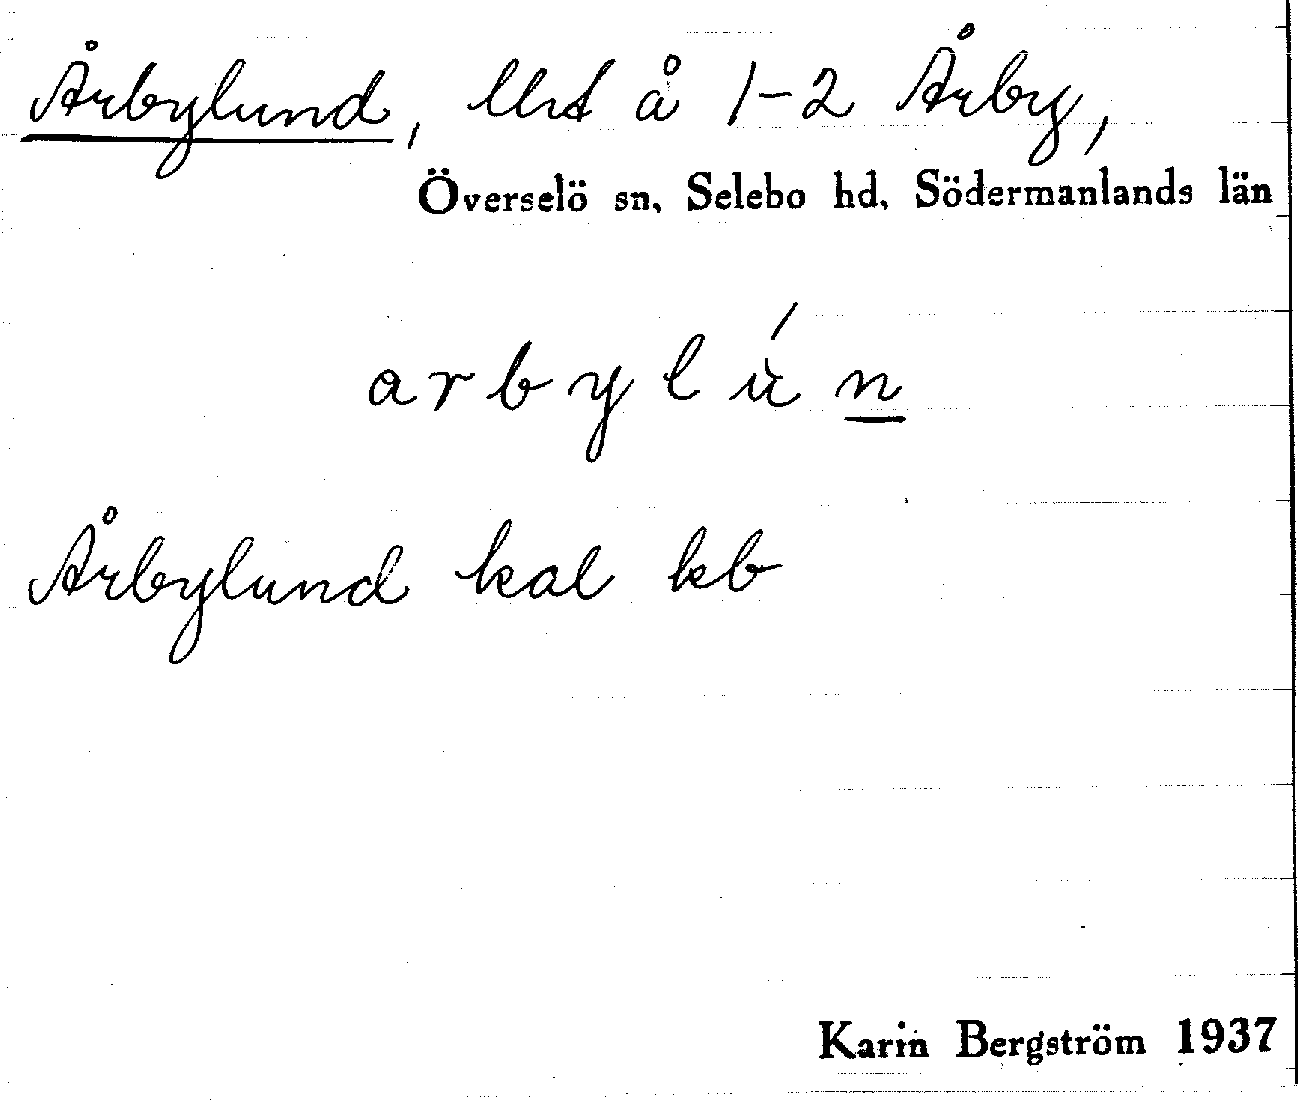 Årbylund, lht å 1-2 Årby,
Överselö sn, Selebo hd, Södermanlands län
arbylún
Årbylund kal kb
Karin Bergström 1937